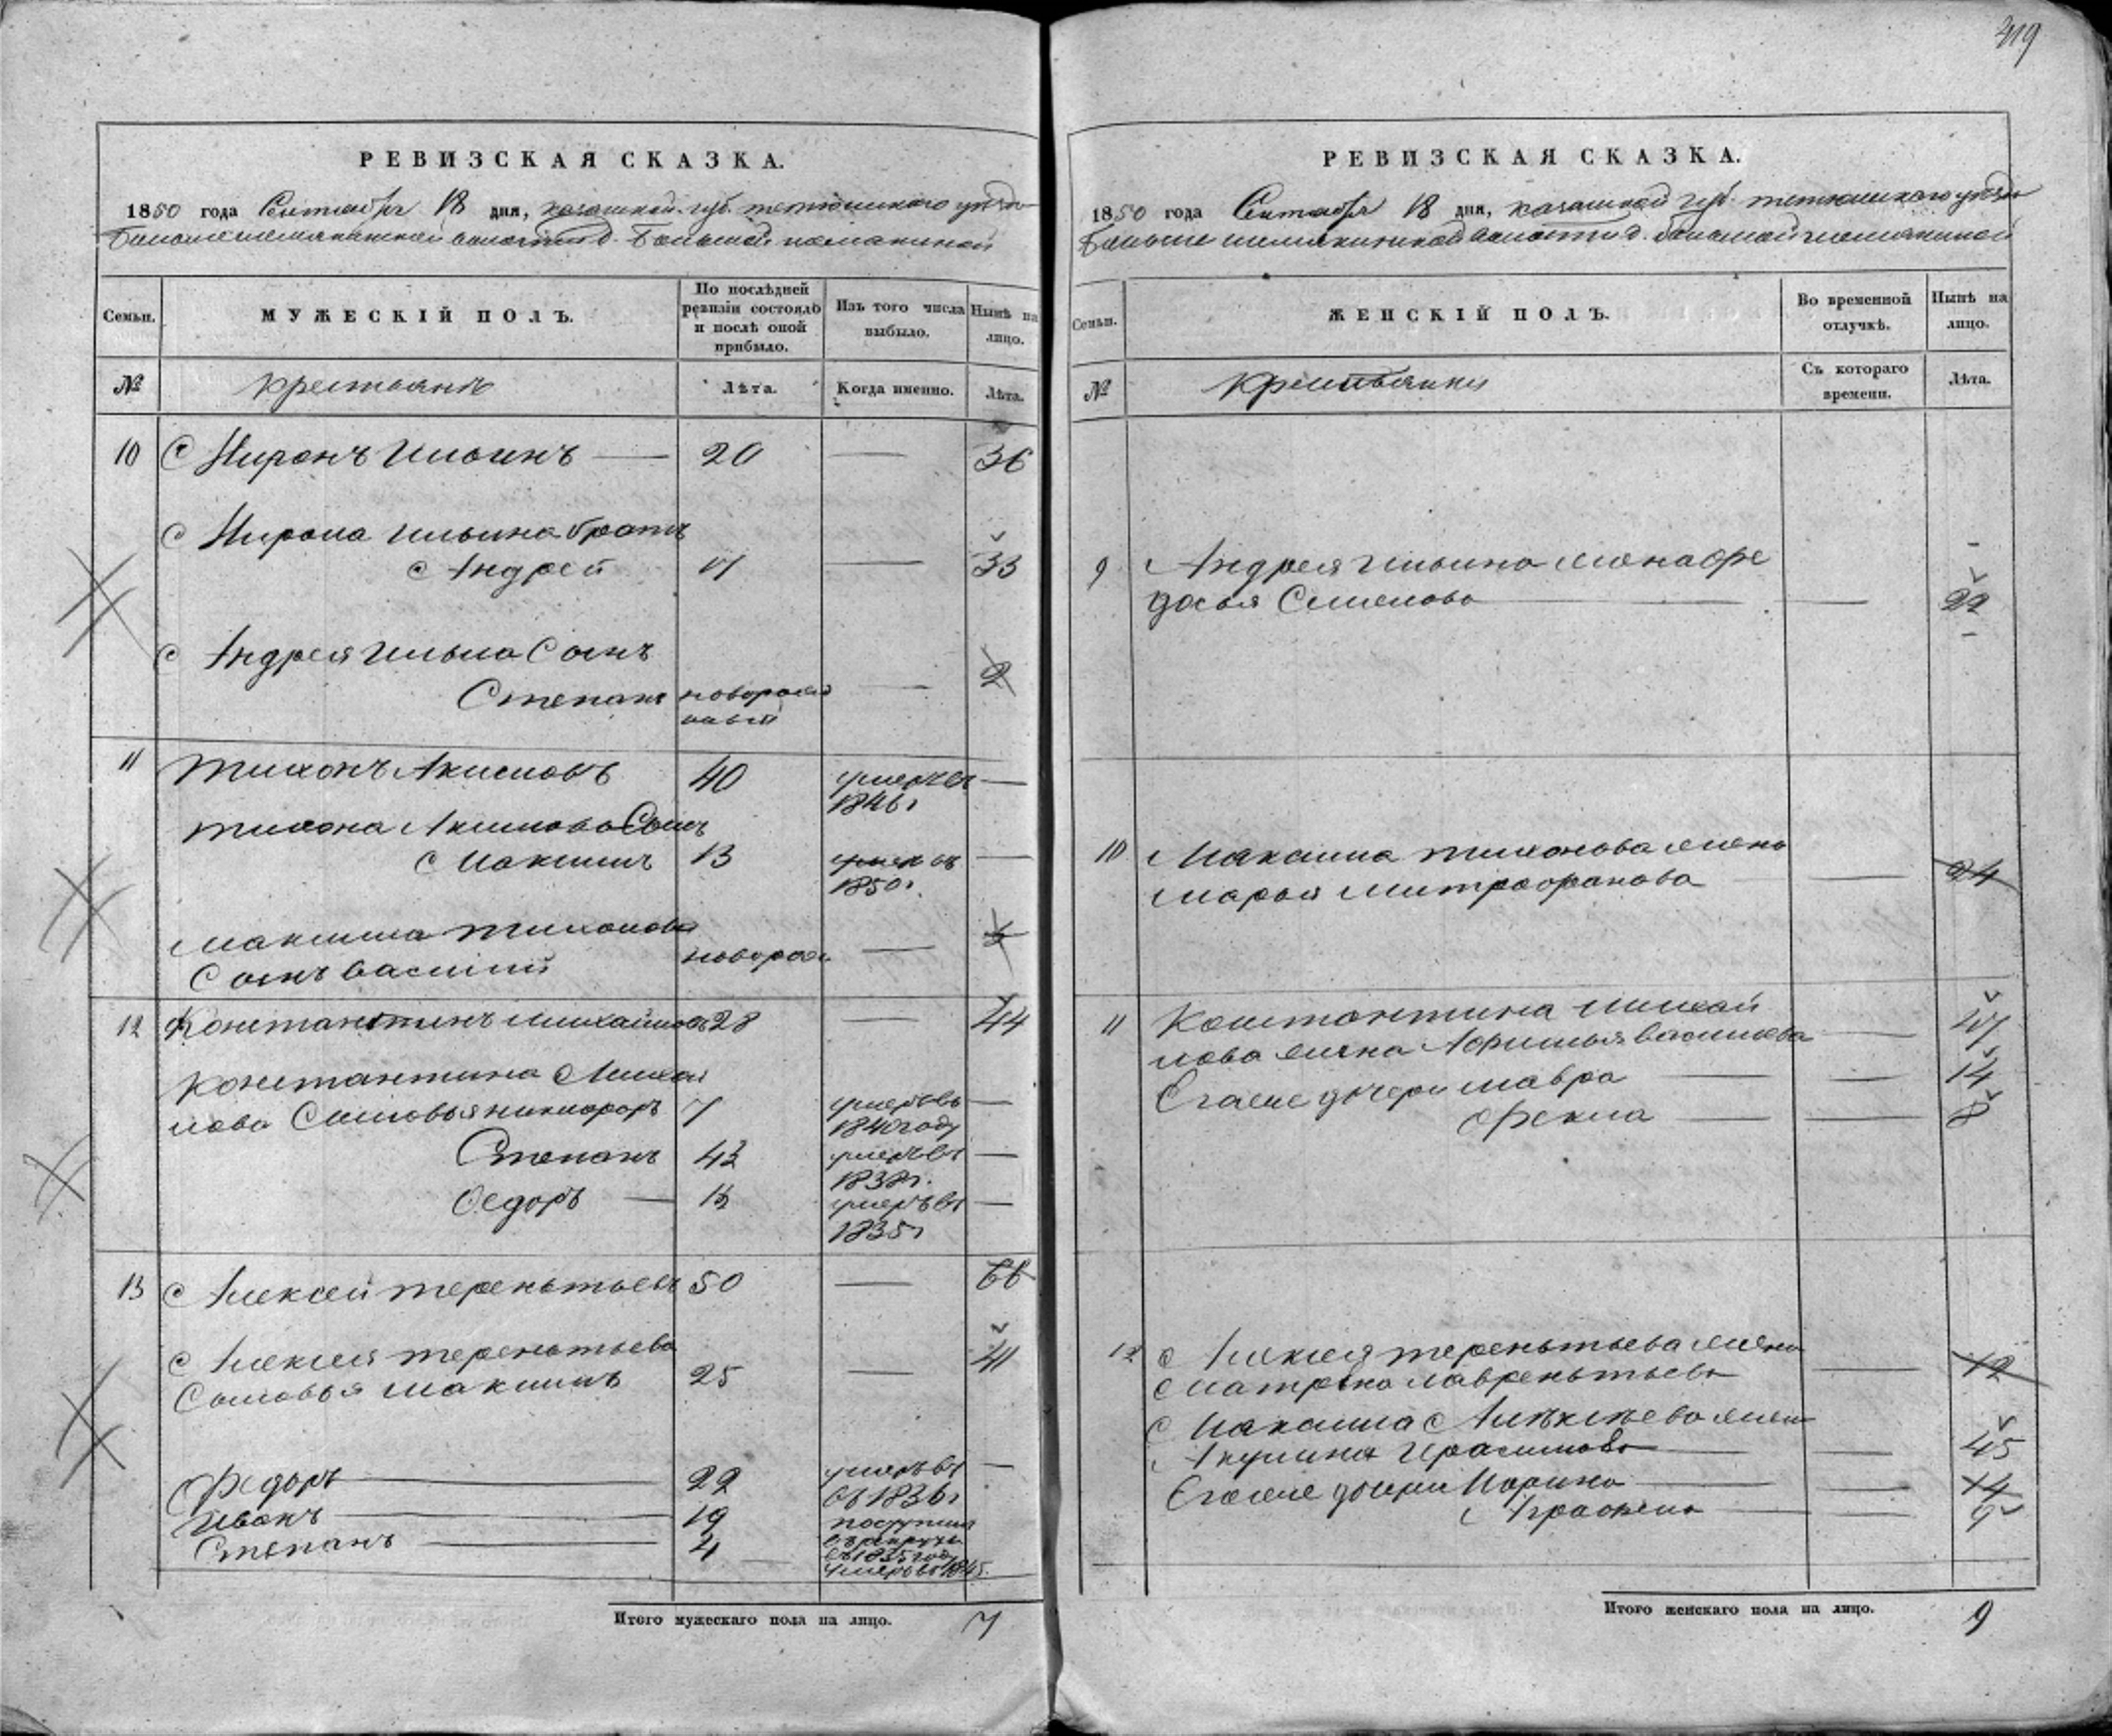 РЕВИЗСКАЯ СКАЗКА.
1850 года Сентября 18 дня, казанской губ. тетюшскаго уезда
Большешемякинской волости д. Большой шемякиной
Семьи.
МУЖЕСКІЙ ПОЛЪ.
По послѣдней ревизіи состояло и послѣ оной прибыло.
Изъ того числа выбыло.
Нынѣ на лицо.
№
крестьянъ
Лѣта.
Когда именно.
Лѣта.
10 Миронъ Ильинъ 20 — 36
Мирона Ильина братъ
Андрей 17 — 33
Андрея Ильина Сынъ
Степанъ новорож — 2
дный
11 тихонъ Акимовъ 40 умеръ въ —
1846 г
тихона Акимова Сынъ
Максимъ 13 умеръ въ —
1850 г.
Максима тихонова
Сынъ василий новорож —
12 Константинъ михайловъ 28 — 44
Константина Михай
лова Сыновья никифоръ 7 умеръ въ —
1840 году
Степанъ 4½ умеръ въ —
1838 г.
Федоръ — 1½ умеръ въ —
1835 г
13 Алексей терентьевъ 50 — 66
Алексея терентьева
Сыновья максимъ 25 — 41
Федоръ 22 умеръ въ —
въ 1836 г
Иванъ 19 поступилъ
въ рекруты
въ 1835 году
Степанъ 4 умеръ въ 1845.
Итого мужескаго пола на лицо. 7
419
РЕВИЗСКАЯ СКАЗКА.
1850 года Сентября 18 дня, казанской губ. тетюшскаго уезда
Больше шемякинской волости д. большой шемякиной
Семьи.
ЖЕНСКІЙ ПОЛЪ.
Во временной отлучкѣ.
Нынѣ на лицо.
№
крестьянки
Съ котораго времени.
Лѣта.
9 Андрея Ильина жена Фе
досья Семенова — 22
10 Максима тихонова жена
марья митрофанова — 24
11 Константина михай
лова жена Афимья васильева — 47
Егоже дочери мавра — 14
Фекла — 8
12 Алексея терентьева жена
матрена лаврентьева —
Максима Алексеева жена
Акулина Герасимова — 45
Егоже дочери Марина — 14
Аграфена — 9
Итого женскаго пола на лицо. 9